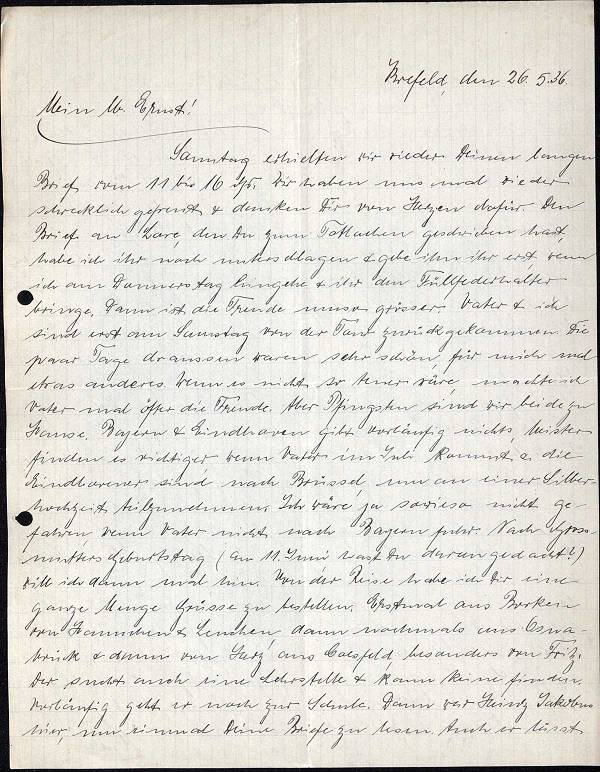 Krefeld, den 26. 5. 36.
Mein lb. Ernst!
Samstag erhielten wir wieder Deinen langen
Brief vom 11 bis 16 ds. Wir haben uns mal wieder
schrecklich gefreut & danken Dir von Herzen dafür. Den
Brief an Lore, den Du zum geschrieben hast,
habe ich ihr noch unterschlagen & gebe ihn ihr erst, wenn
ich am Donnerstag hingehe & ihr den Füllfederhalter
bringe, Dann ist die Freude umso grösser. Vater & ich
sind erst am Samstag von der Tour zurückgekommen. Die
paar Tage draussen waren sehr schön, für mich mal
etwas anderes. Wenn es nicht so teuer wäre, machte ich
Vater mal öfter die Freude. Aber Pfingsten sind wir beide zu
Hause. Bayern & Eindhoven gibt vorläufig nichts, Meister
finden es richtiger wenn Vater im Juli kommt & die
Eindhovener sind nach Brüssel, um an einer Silber-
hochzeit teilzunehmen. Ich wäre ja sowieso nicht ge-
fahren wenn Vater nicht nach Bayern fuhr. Nach Gross-
mutters Geburtstag (am 11. Juni hast Du daran gedacht?)
will ich dann mal hin. Von der Reise habe ich Dir eine
ganze Menge Grüsse zu bestellen. Erstmal aus Borken
von Hannchen & Lenchen, dann nochmals aus Osna-
brück & dann von Herz aus Coesfeld besonders von Fritz.
Der sucht auch eine Lehrstelle & kann keine finden.
Vorläufig geht er noch zur Schule. Dann war Heinz Jakobus
hier, um einmal Deine Briefe zu lesen. Auch er lässt